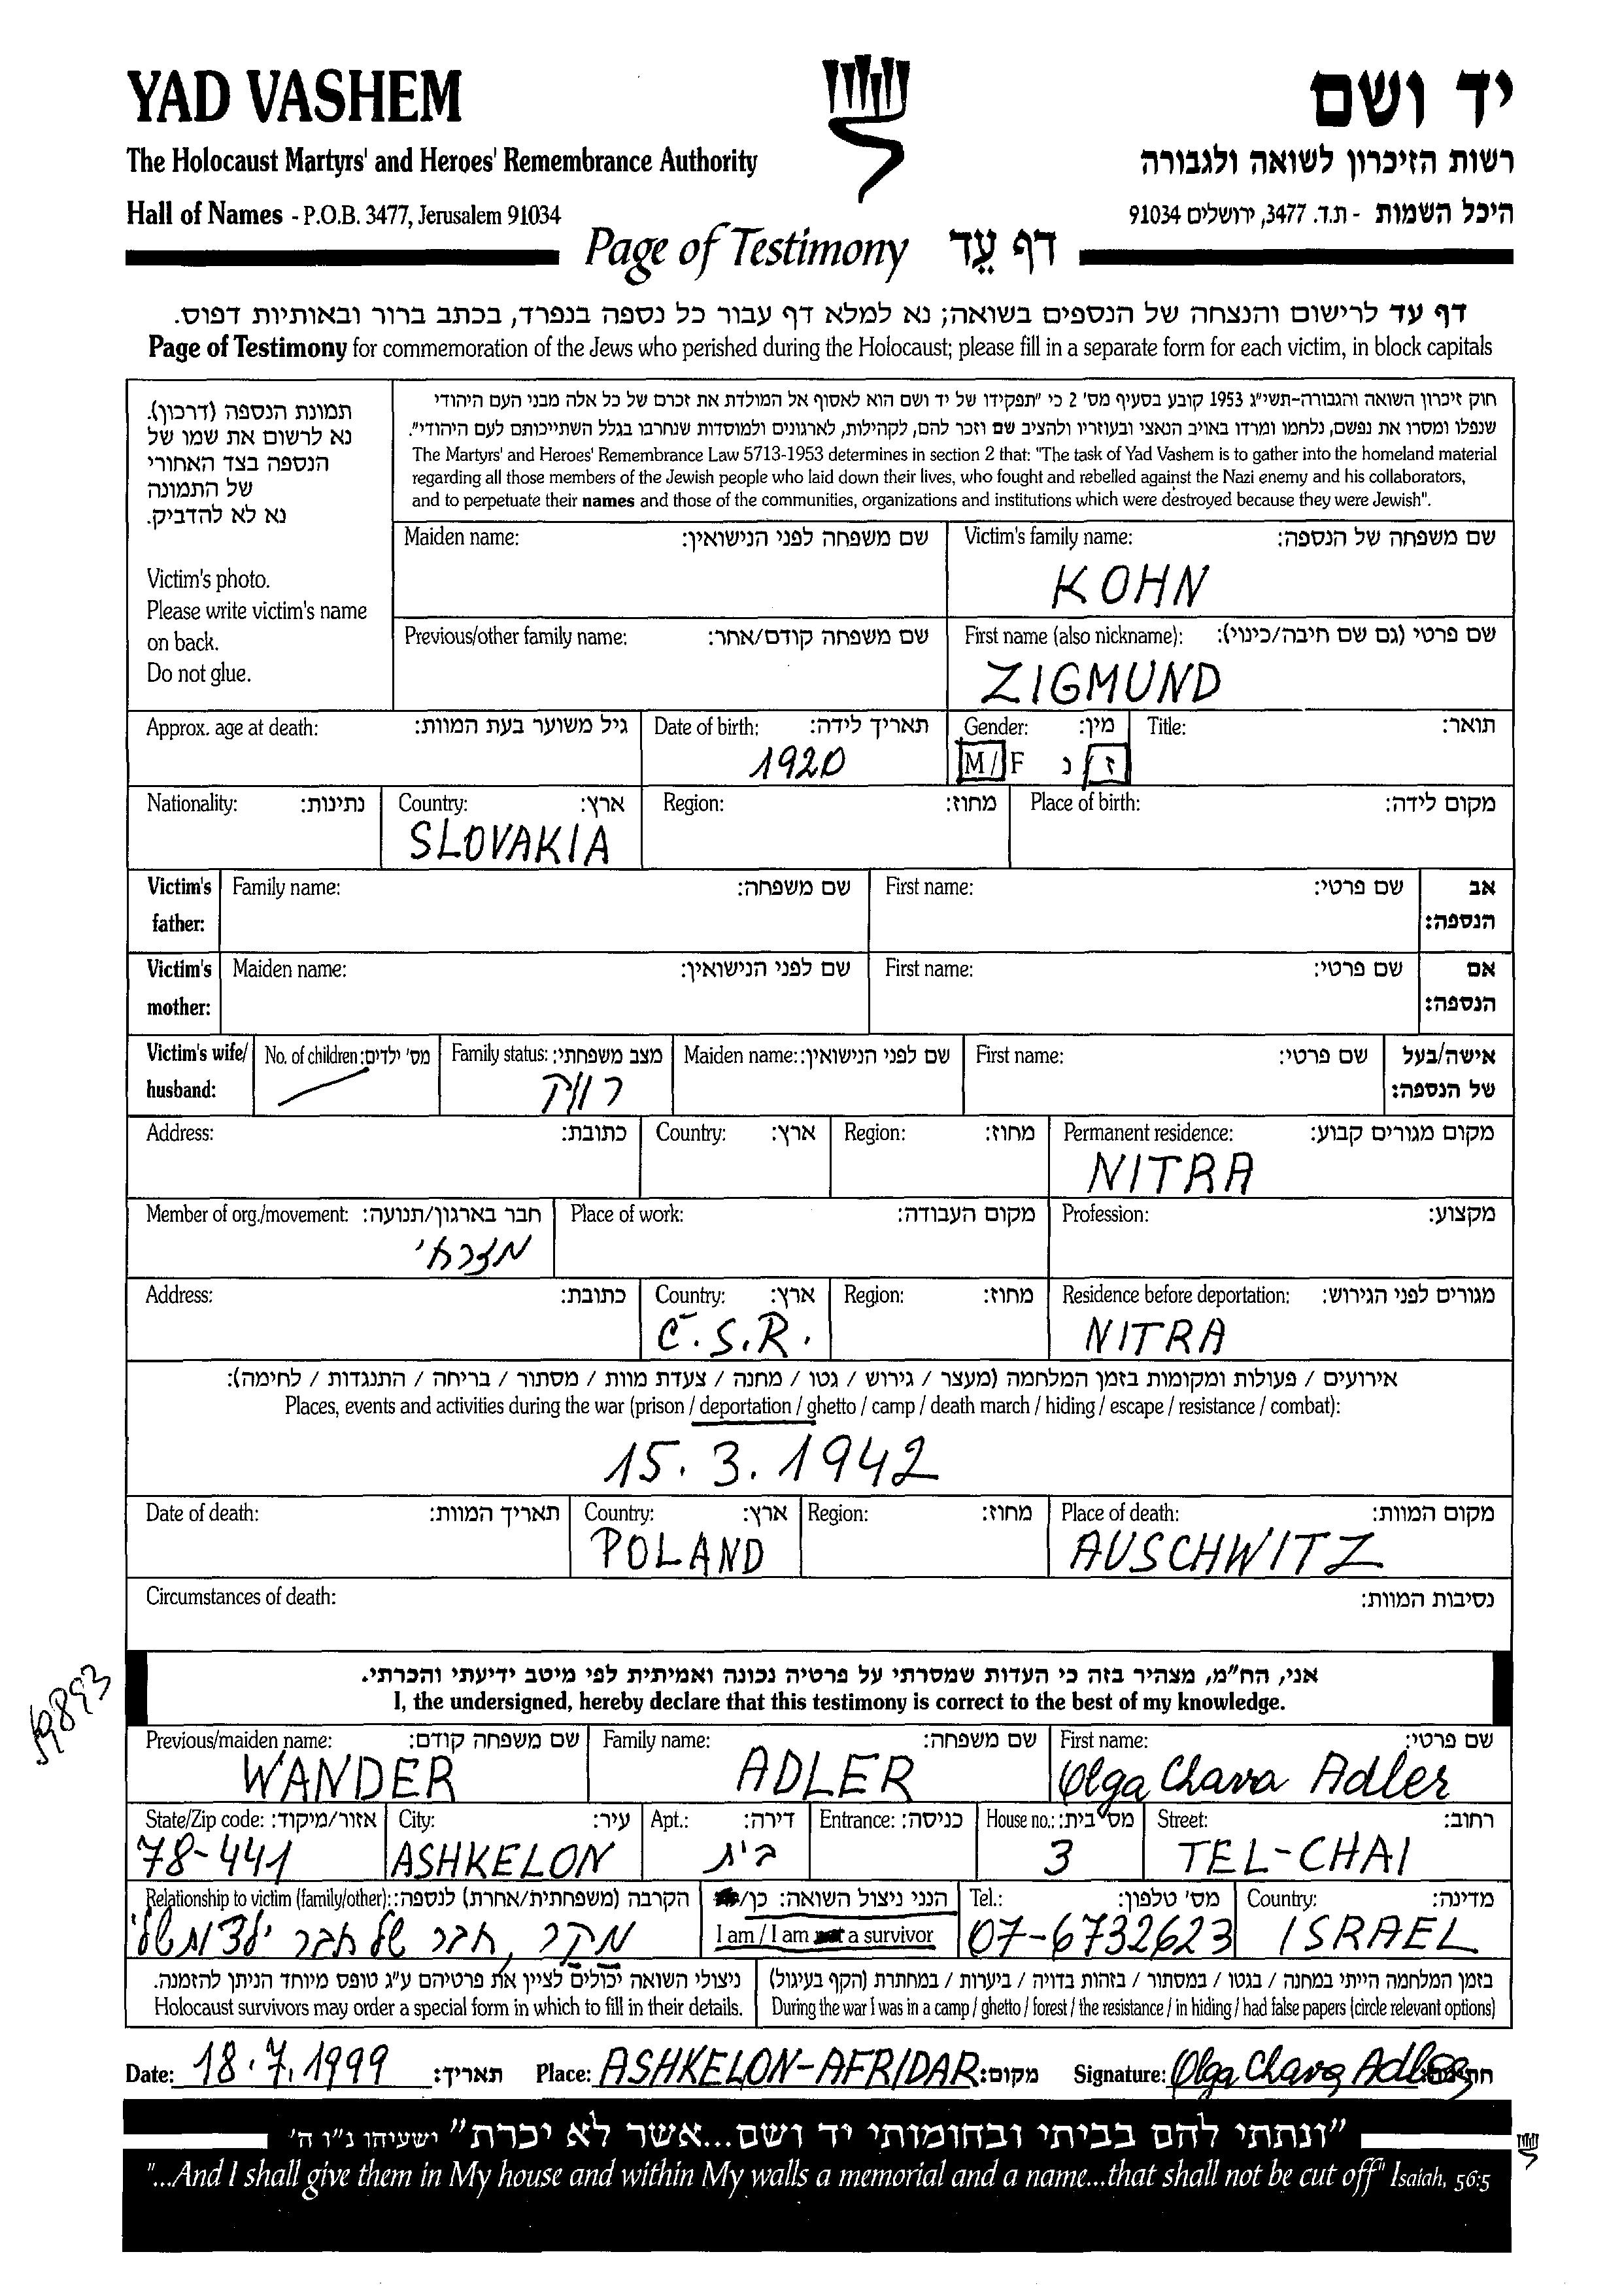 YAD VASHEM
יד ושם
The Holocaust Martyrs' and Heroes' Remembrance Authority
רשות הזיכרון לשואה ולגבורה
Hall of Names - P.O.B. 3477, Jerusalem 91034
היכל השמות - ת.ד. 3477, ירושלים 91034
Page of Testimony דף עֵד
דף עד לרישום והנצחה של הנספים בשואה; נא למלא דף עבור כל נספה בנפרד, בכתב ברור ובאותיות דפוס.
Page of Testimony for commemoration of the Jews who perished during the Holocaust; please fill in a separate form for each victim, in block capitals
תמונת הנספה (דרכון).
נא לרשום את שמו של
הנספה בצד האחורי
של התמונה
נא לא להדביק.
Victim's photo.
Please write victim's name
on back.
Do not glue.
חוק זיכרון השואה והגבורה-תשי"ג 1953 קובע בסעיף מס' 2 כי "תפקידו של יד ושם הוא לאסוף אל המולדת את זכרם של כל אלה מבני העם היהודי
שנפלו ומסרו את נפשם, נלחמו ומרדו באויב הנאצי ובעוזריו ולהציב שם וזכר להם, לקהילות, לארגונים ולמוסדות שנחרבו בגלל השתייכותם לעם היהודי".
The Martyrs' and Heroes' Remembrance Law 5713-1953 determines in section 2 that: "The task of Yad Vashem is to gather into the homeland material
regarding all those members of the Jewish people who laid down their lives, who fought and rebelled against the Nazi enemy and his collaborators,
and to perpetuate their names and those of the communities, organizations and institutions which were destroyed because they were Jewish".
Maiden name: שם משפחה לפני הנישואין:
Victim's family name: שם משפחה של הנספה:
KOHN
Previous/other family name: שם משפחה קודם/אחר:
First name (also nickname): שם פרטי (גם שם חיבה/כינוי):
ZIGMUND
Approx. age at death: גיל משוער בעת המוות:
Date of birth: תאריך לידה:
1920
Gender: מין:
M / F ז / נ
Title: תואר:
Nationality: נתינות:
Country: ארץ:
SLOVAKIA
Region: מחוז:
Place of birth: מקום לידה:
Victim's father: Family name: שם משפחה: First name: שם פרטי: אב הנספה:
Victim's mother: Maiden name: שם לפני הנישואין: First name: שם פרטי: אם הנספה:
Victim's wife/ husband: No. of children: מס' ילדים: Family status: מצב משפחתי: Maiden name: שם לפני הנישואין: First name: שם פרטי: אישה/בעל של הנספה:
רווק
Address: כתובת: Country: ארץ: Region: מחוז: Permanent residence: מקום מגורים קבוע:
NITRA
Member of org./movement: חבר בארגון/תנועה: Place of work: מקום העבודה: Profession: מקצוע:
מזרחי
Address: כתובת: Country: ארץ: Region: מחוז: Residence before deportation: מגורים לפני הגירוש:
Č.S.R. NITRA
אירועים / פעולות ומקומות בזמן המלחמה (מעצר / גירוש / גטו / מחנה / צעדת מוות / מסתור / בריחה / התנגדות / לחימה):
Places, events and activities during the war (prison / deportation / ghetto / camp / death march / hiding / escape / resistance / combat):
15. 3. 1942
Date of death: תאריך המוות: Country: ארץ: Region: מחוז: Place of death: מקום המוות:
POLAND AUSCHWITZ
Circumstances of death: נסיבות המוות:
אני, הח"מ, מצהיר בזה כי העדות שמסרתי על פרטיה נכונה ואמיתית לפי מיטב ידיעתי והכרתי.
I, the undersigned, hereby declare that this testimony is correct to the best of my knowledge.
Previous/maiden name: שם משפחה קודם: Family name: שם משפחה: First name: שם פרטי:
WANDER ADLER Olga Chava Adler
State/Zip code: אזור/מיקוד: City: עיר: Apt.: דירה: Entrance: כניסה: House no.: מס' בית: Street: רחוב:
78-441 ASHKELON בית 3 TEL-CHAI
Relationship to victim (family/other): הקרבה (משפחתית/אחרת) לנספה: הנני ניצול השואה: כן/ Tel.: מס' טלפון: Country: מדינה:
מכר, חבר של חבר ילדות שלי I am / I am a survivor 07-6732623 ISRAEL
ניצולי השואה יכולים לציין את פרטיהם ע"ג טופס מיוחד הניתן להזמנה.
Holocaust survivors may order a special form in which to fill in their details.
בזמן המלחמה הייתי במחנה / בגטו / במסתור / בזהות בדויה / ביערות / במחתרת (הקף בעיגול)
During the war I was in a camp / ghetto / forest / the resistance / in hiding / had false papers (circle relevant options)
Date: 18.7.1999 תאריך: Place: ASHKELON-AFRIDAR מקום: Signature: Olga Chava Adler
"ונתתי להם בביתי ובחומותי יד ושם...אשר לא יכרת" ישעיהו נ"ו ה'
"...And I shall give them in My house and within My walls a memorial and a name...that shall not be cut off" Isaiah, 56:5